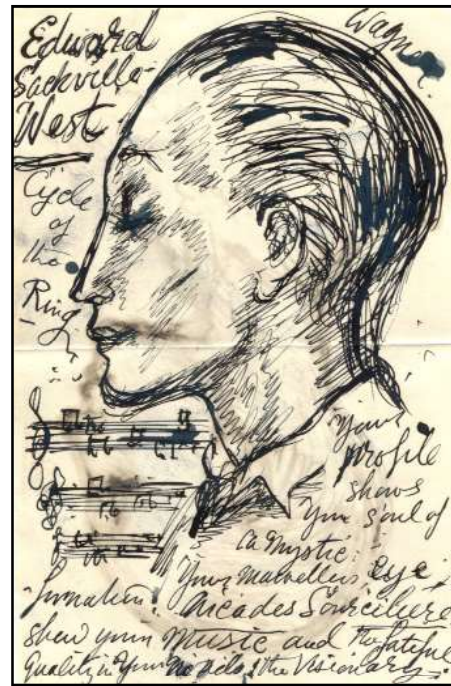 Edward
Sackville-
West
Wagner
Cycle
of
the
Ring
Your
profile
shows
you soul of
a mystic.
Your marvellous eye
formation. Arcades Sourcilière
show your music and the fateful
quality in your the Visionary